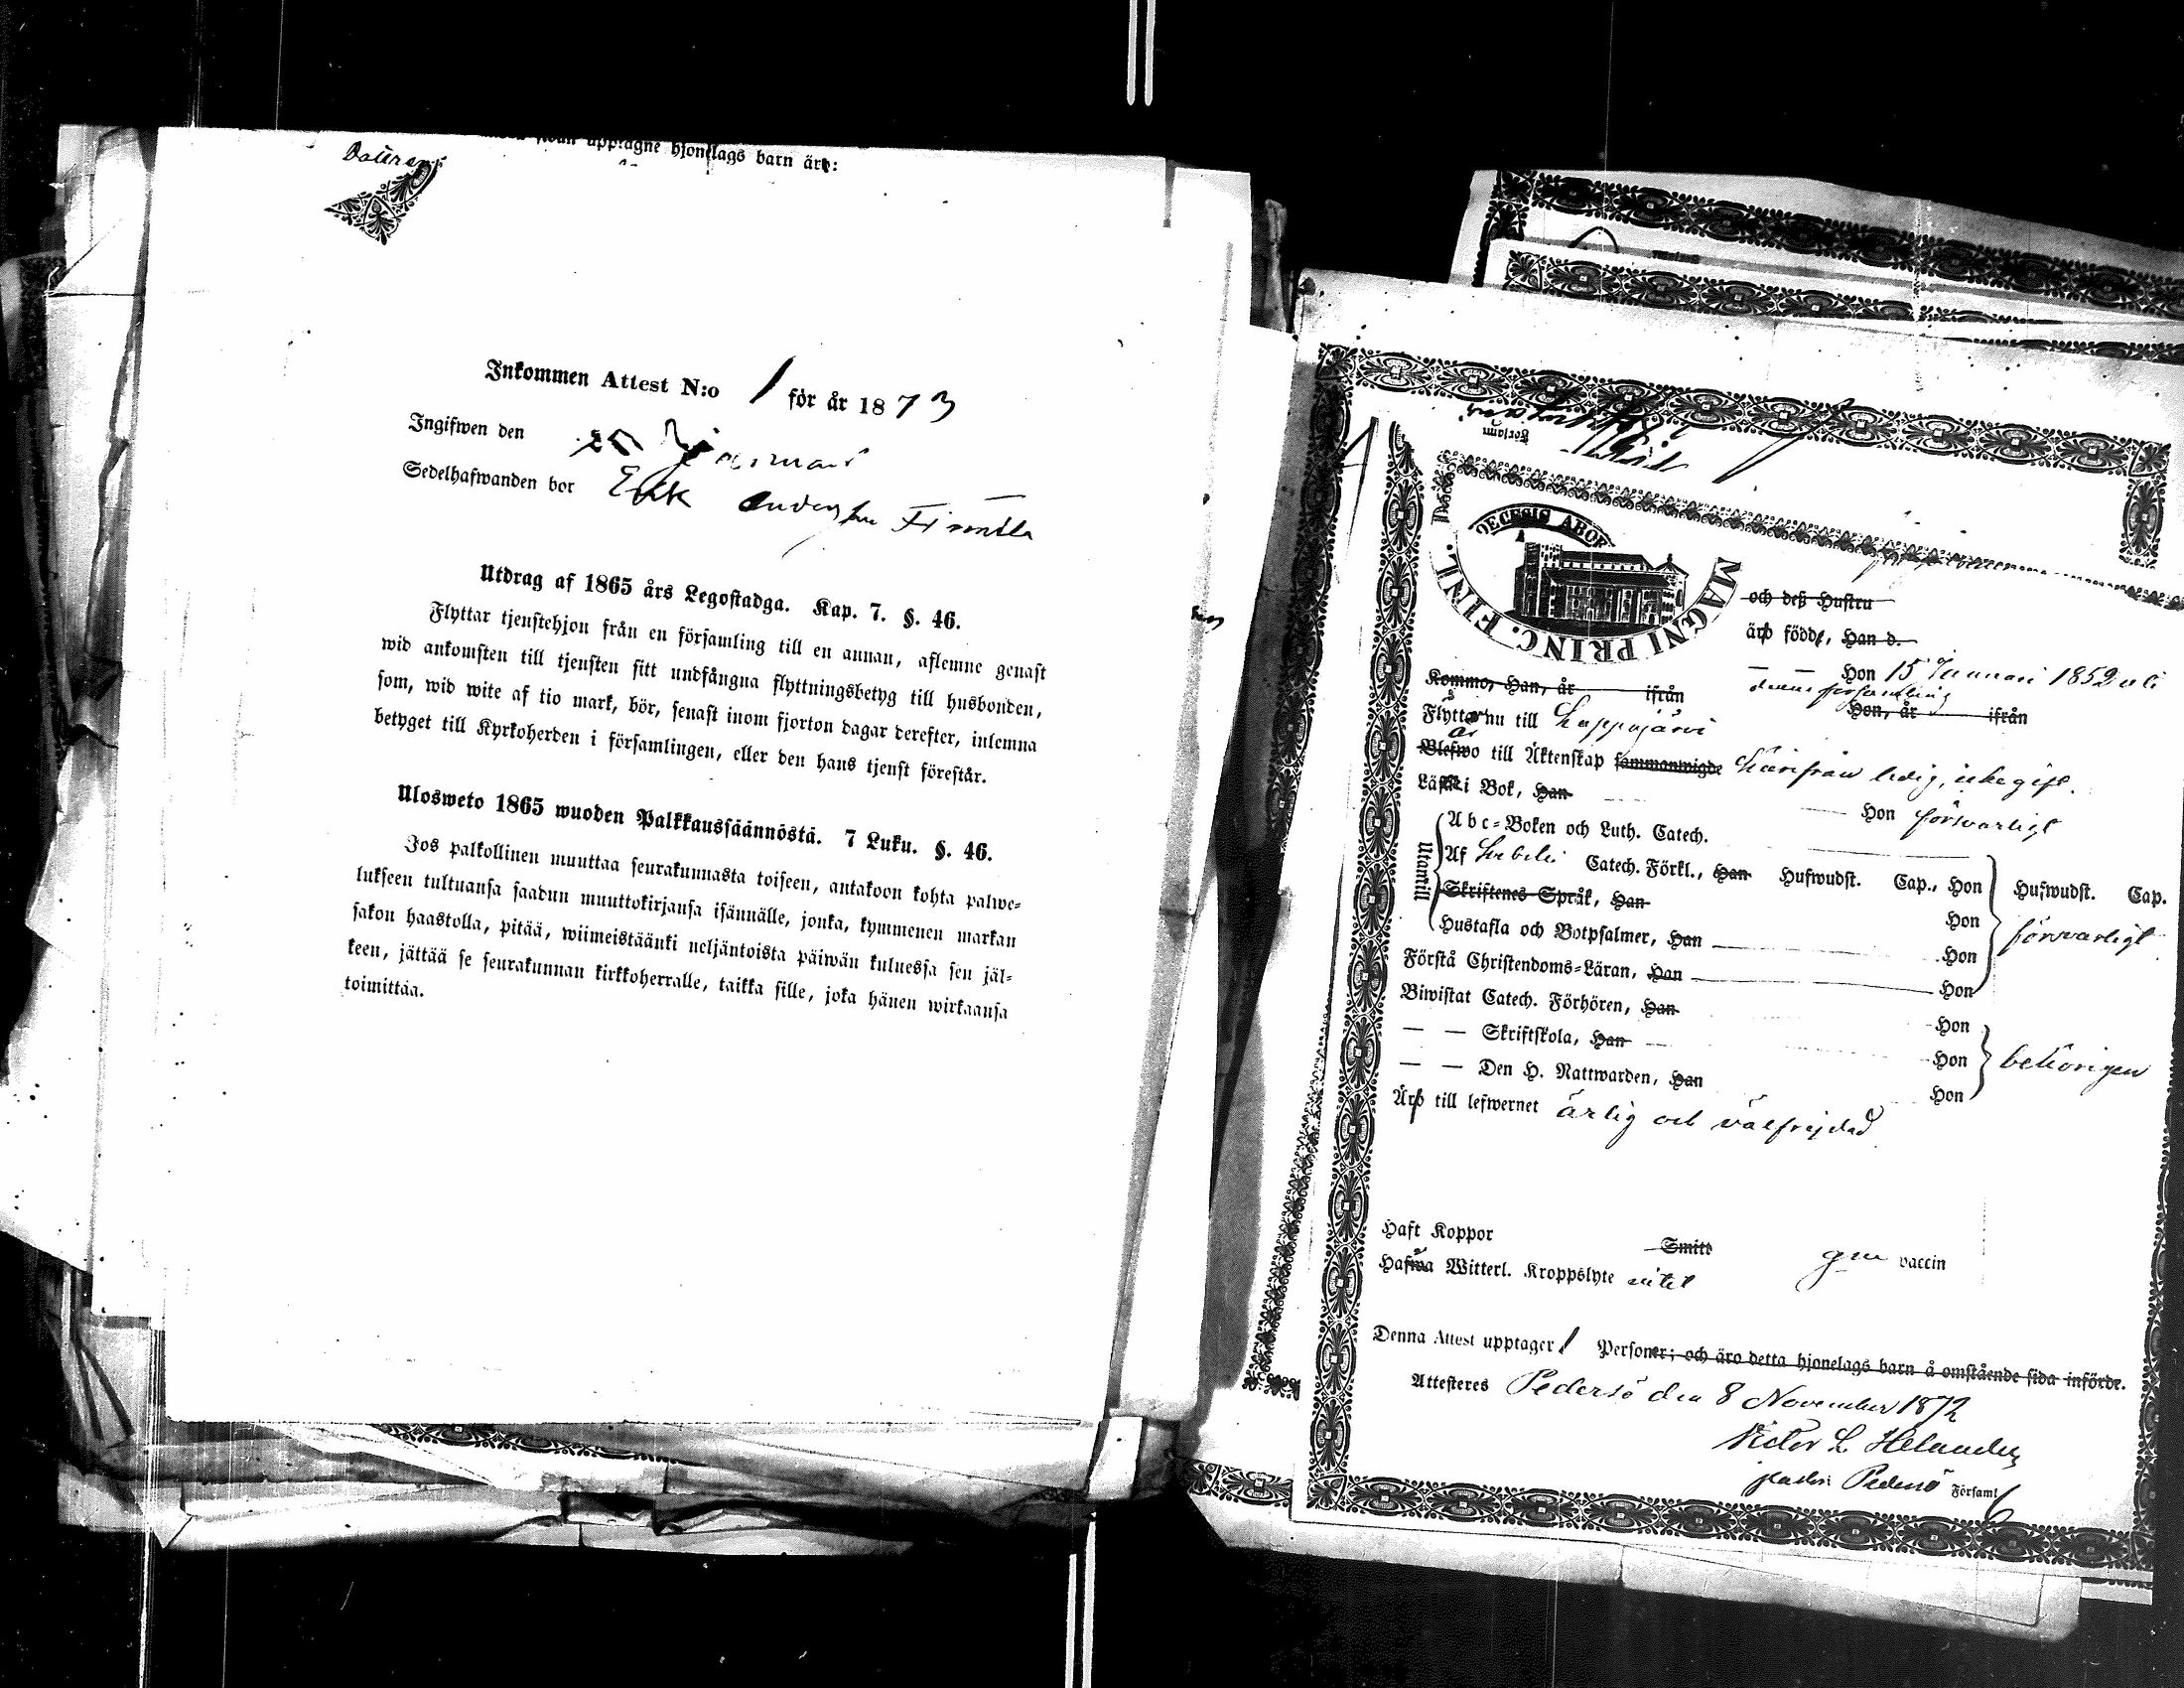 upptagne hjonelags barn äro:
Inkommen Attest N:o 1 för år 1873
Ingifwen den Januari
Sedelhafwanden bor Erik Andersson
Utdrag af 1865 års Legostadga. Kap. 7. §. 46.
Flyttar tjenstehjon från en församling till en annan, aflemne genast
wid ankomsten till tjensten sitt undfångna flyttningsbetyg till husbonden,
som, wid wite af tio mark, bör, senast inom fjorton dagar derefter, inlemna
betyget till Kyrkoherden i församlingen, eller den hans tjenst förestår.
Ulosweto 1865 wuoden Palkkaussäännöstä. 7 Luku. §. 46.
Jos palkollinen muuttaa seurakunnasta toiseen, antakoon kohta palwe-
lukseen tultuansa saadun muuttokirjansa isännälle, jonka, kymmenen markan
sakon haastolla, pitää, wiimeistäänki neljäntoista päiwän kuluessa sen jäl-
keen, jättää se seurakunnan kirkkoherralle, taikka sille, joka hänen wirkaansa
toimittaa.
OECESIS ABOE
MAGNI PRINC. FINL.
och deß Hustru
äro födde, Han d.
— — Hon 15 Januari 1852
Komma, Han, år ifrån denna församling Hon, år ifrån
Flyttar nu till Lappajärvi
Blefwo till Äktenskap sammanwigde härifrån ledig, icke gift.
Läsa i Bok, Han Hon försvarligt
Utantill
Abc-Boken och Luth. Catech.
Af Svebelii Catech. Förkl., Han Hufwudst. Cap., Hon Hufwudst. Cap.
Skriftenes Språk, Han Hon försvarligt
Hustafla och Botpsalmer, Han Hon
Förstå Christendoms-Läran, Han Hon
Biwistat Catech. Förhören, Han Hon
— — Skriftskola, Han Hon behörigen
— — Den H. Nattwarden, Han Hon
Äro till lefwernet ärlig och välfrejdad
Haft Koppor Smitt gm vaccin
Hafwa Witterl. Kroppslyte intet
Denna Attest upptager 1 Personer; och äro detta hjonelags barn å omstående sida införde.
Attesteres Pedersö den 8 November 1872
Victor L Helander
Pedersö Församl